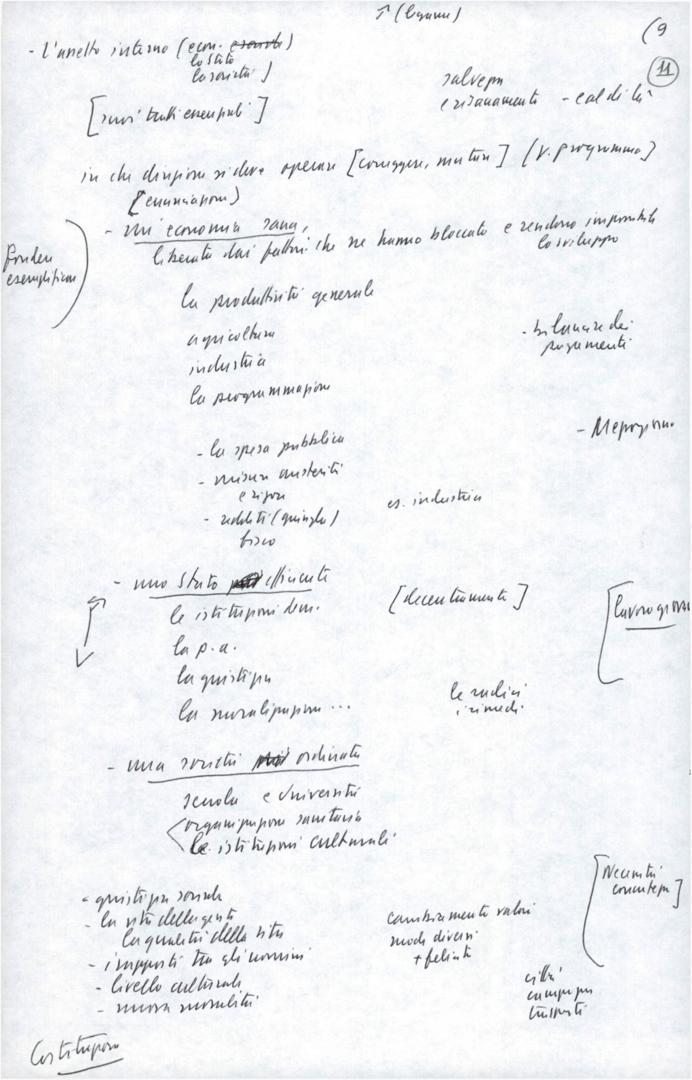 (legami)
(9
11
- L'assetto interno (econ.
lo Stato
la società)
salvezza
e risanamento - e al di là
[suoi tratti essenziali]
in che direzione si deve operare [correggere, mutare] (v. programma)
[enunciazione)
- un'economia sana,
liberata dai fattori che ne hanno bloccato e rendono impossibile
lo sviluppo
esemplificare
la produttività generale
agricoltura
industria
la programmazione
- bilancia dei
pagamenti
- Mezzogiorno
- la spesa pubblica
- misure austerità
e rigore
- redditi (giungla)
fisco
es. industria
- uno Stato efficiente
le istituzioni dem.
[decentramento]
la p.a.
la giustizia
la moralizzazione ...
le radici
i rimedi
- una società ordinata
scuola e Università
organizzazione sanitaria
le istituzioni culturali
[Necessità
concretezza]
- giustizia sociale
- la vita della gente
la qualità della vita
- i rapporti tra gli uomini
- livello culturale
- nuova moralità
cambiamento valori
modi diversi
città
campagna
trasporti
Costituzione